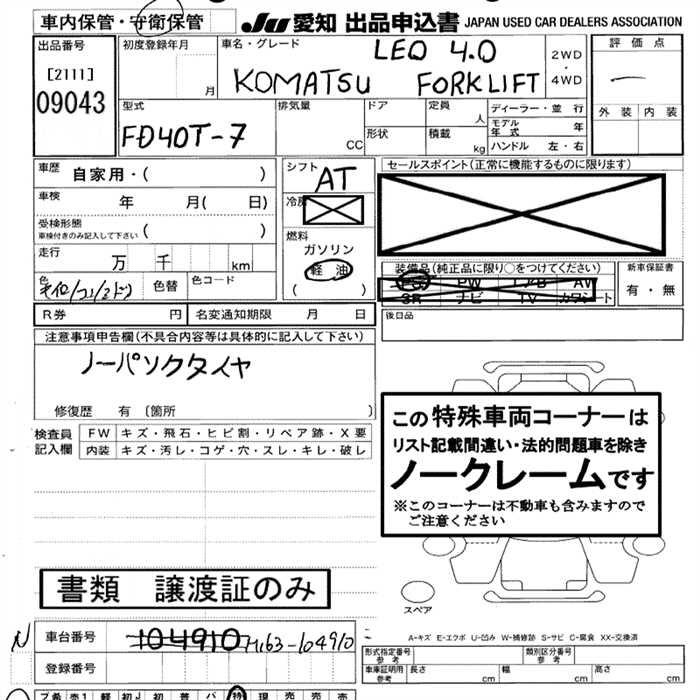 車内保管・守衛保管
JU 愛知 出品申込書 JAPAN USED CAR DEALERS ASSOCIATION
出品番号
[2111]
09043
初度登録年月
月
車名・グレード
LEO 4.0
KOMATSU FORKLIFT
2WD
・
4WD
評価点
外装 内装
型式
FD40T-7
排気量
CC
ドア
形状
定員
人
積載
kg
ディーラー・並行
モデル年式 年
ハンドル 左・右
車歴 自家用・( )
車検 年 月( 日)
受検形態
車検付きのみ記入して下さい
( )
走行
万 千 km
色
色替
色コード
シフト
AT
冷房
燃料
ガソリン
軽油
( )
セールスポイント(正常に機能するものに限ります)
装備品(純正品に限り○をつけてください)
PS PW エアB AW
SR ナビ TV カワシート
新車保証書
有・無
R券 円
名変通知期限 月 日
後日品
注意事項申告欄(不具合内容等は具体的に記入して下さい)
ノーパンクタイヤ
修復歴 有 〔箇所 〕
検査員
記入欄
FW キズ・飛石・ヒビ割・リペア跡・X要
内装 キズ・汚レ・コゲ・穴・スレ・キレ・破レ
この特殊車両コーナーは
リスト記載間違い・法的問題車を除き
ノークレームです
※このコーナーは不動車も含みますので
ご注意ください
書類 譲渡証のみ
スペア
A-キズ E-エクボ U-凹み W-補修跡 S-サビ C-腐食 XX-交換済
N
車台番号
104910 M163-104910
登録番号
型式指定番号
参考
類別区分番号
参考
車庫証明用
参考
長さ cm
幅 cm
高さ cm